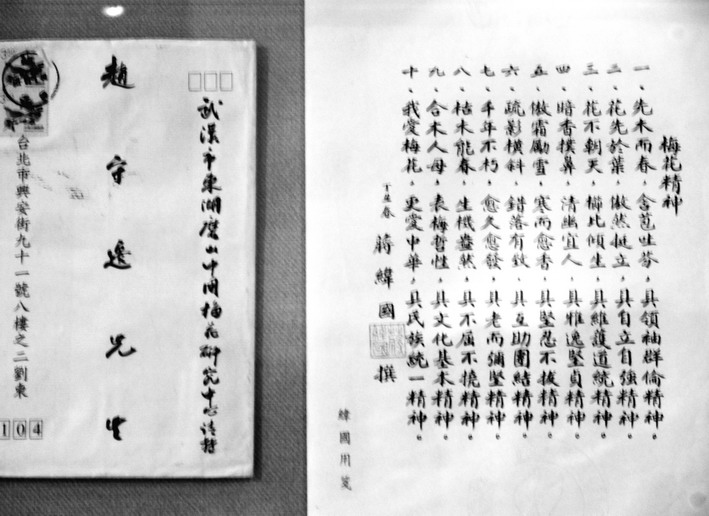 武漢市東湖磨山中国梅花研究中心请转
趙守邊先生
台北市興安街九十一號八樓之二劉東
104
梅花精神
一、先木而春,含苞吐芬,具領袖群倫精神。
二、花先於葉,傲然挺立,具自立自強精神。
三、花不朝天,櫛比傾生,具維護道統精神。
四、暗香撲鼻,清幽宜人,具雅逸堅貞精神。
五、傲霜勵雪,寒而愈香,具堅忍不拔精神。
六、疏影橫斜,錯落有致,具互助團結精神。
七、千年不朽,愈久愈發,具老而彌堅精神。
八、枯木能春,生機盎然,具不屈不撓精神。
九、合木人母,表梅哲性,具文化基本精神。
十、我愛梅花,更愛中華,具民族統一精神。
丁丑春 蔣緯國 撰
緯國用箋